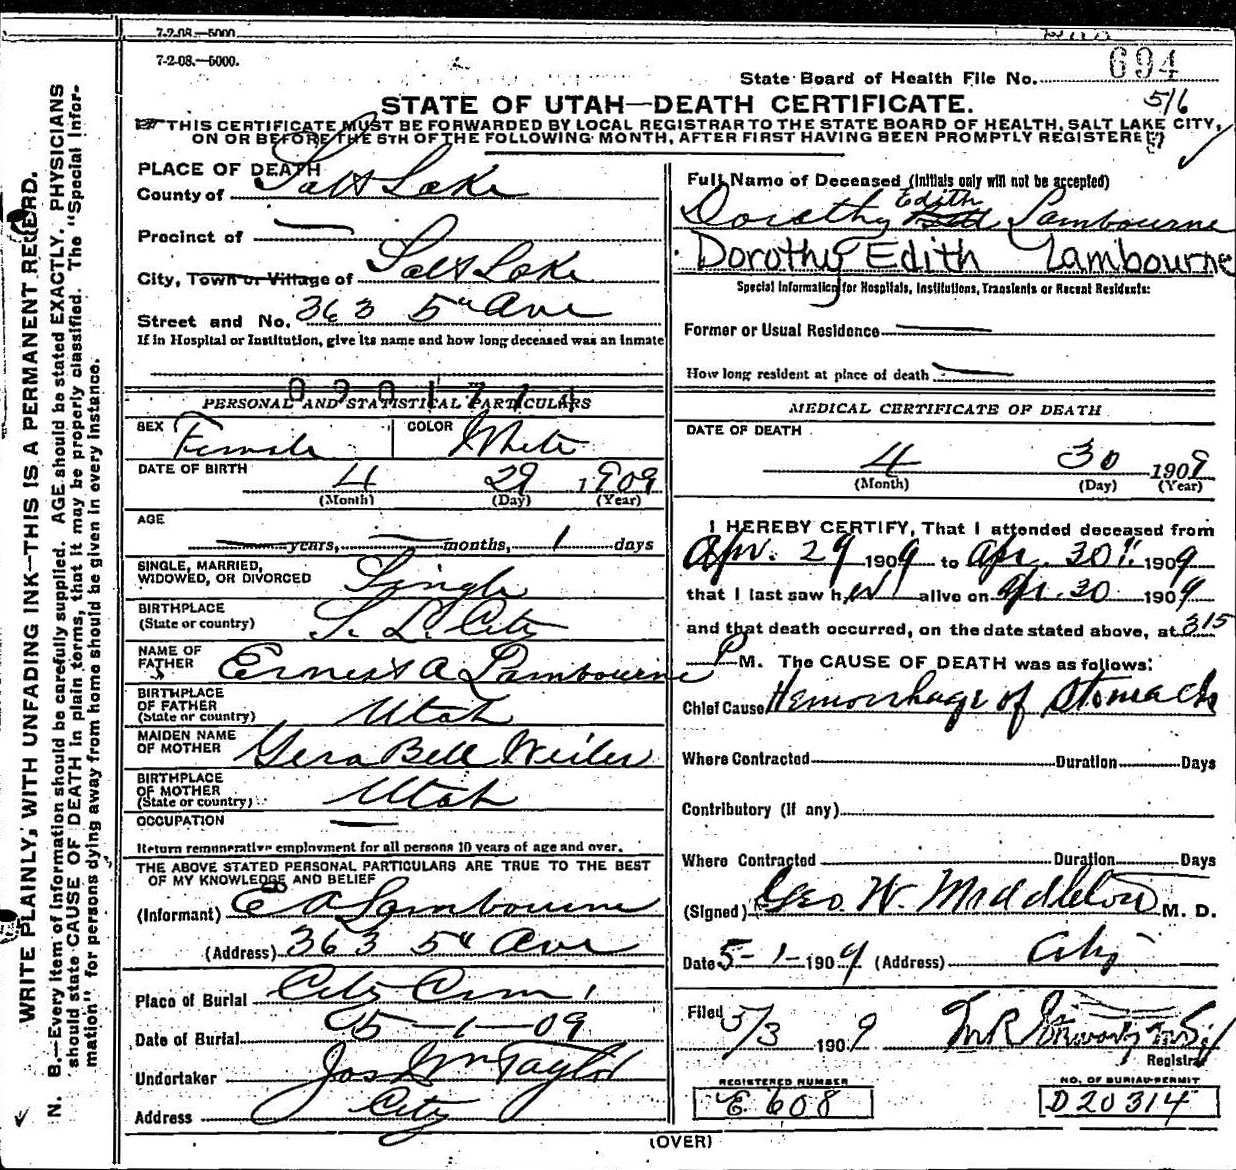 7-2-08.—5000
7-2-08.—5000.
State Board of Health File No. 694
516
STATE OF UTAH—DEATH CERTIFICATE.
THIS CERTIFICATE MUST BE FORWARDED BY LOCAL REGISTRAR TO THE STATE BOARD OF HEALTH, SALT LAKE CITY,
ON OR BEFORE THE 5TH OF THE FOLLOWING MONTH, AFTER FIRST HAVING BEEN PROMPTLY REGISTERED
WRITE PLAINLY, WITH UNFADING INK—THIS IS A PERMANENT RECORD.
N. B.—Every item of information should be carefully supplied. AGE should be stated EXACTLY. PHYSICIANS
should state CAUSE OF DEATH in plain terms, that it may be properly classified. The "Special Infor-
mation" for persons dying away from home should be given in every instance.
PLACE OF DEATH
County of Salt Lake
Precinct of —
City, Town or Village of Salt Lake
Street and No. 363 5th Ave
If in Hospital or Institution, give its name and how long deceased was an inmate
PERSONAL AND STATISTICAL PARTICULARS
SEX Female COLOR White
DATE OF BIRTH 4 29 1909
(Month) (Day) (Year)
AGE
— years, — months, 1 days
SINGLE, MARRIED,
WIDOWED, OR DIVORCED Single
BIRTHPLACE
(State or country) S. L. City
NAME OF
FATHER Ernest A Lambourne
BIRTHPLACE
OF FATHER
(State or country) Utah
MAIDEN NAME
OF MOTHER Bell Weiler
BIRTHPLACE
OF MOTHER
(State or country) Utah
OCCUPATION —
Return remunerative employment for all persons 10 years of age and over.
THE ABOVE STATED PERSONAL PARTICULARS ARE TRUE TO THE BEST
OF MY KNOWLEDGE AND BELIEF
(Informant) E A Lambourne
(Address) 363 5th Ave
Place of Burial City Cem
Date of Burial 5-1-09
Undertaker Jos Wm Taylor
Address City
Full Name of Deceased (Initials only will not be accepted)
Edith
Dorothy Lambourne
Dorothy Edith Lambourne
Special Information for Hospitals, Institutions, Transients or Recent Residents:
Former or Usual Residence —
How long resident at place of death —
MEDICAL CERTIFICATE OF DEATH
DATE OF DEATH
4 30 1909
(Month) (Day) (Year)
I HEREBY CERTIFY, That I attended deceased from
Apr. 29 1909 to Apr. 30th 1909
that I last saw her alive on Apr. 30 1909
and that death occurred, on the date stated above, at 315
P M. The CAUSE OF DEATH was as follows:
Chief Cause Hemorrhage of Stomach
Where Contracted Duration Days
Contributory (if any)
Where Contracted Duration Days
(Signed) Geo. W. Middleton M. D.
Date 5-1-1909 (Address) City
Filed 5/3 1909
Registrar
REGISTERED NUMBER
E 608
NO. OF BURIAL PERMIT
D 20314
(OVER)